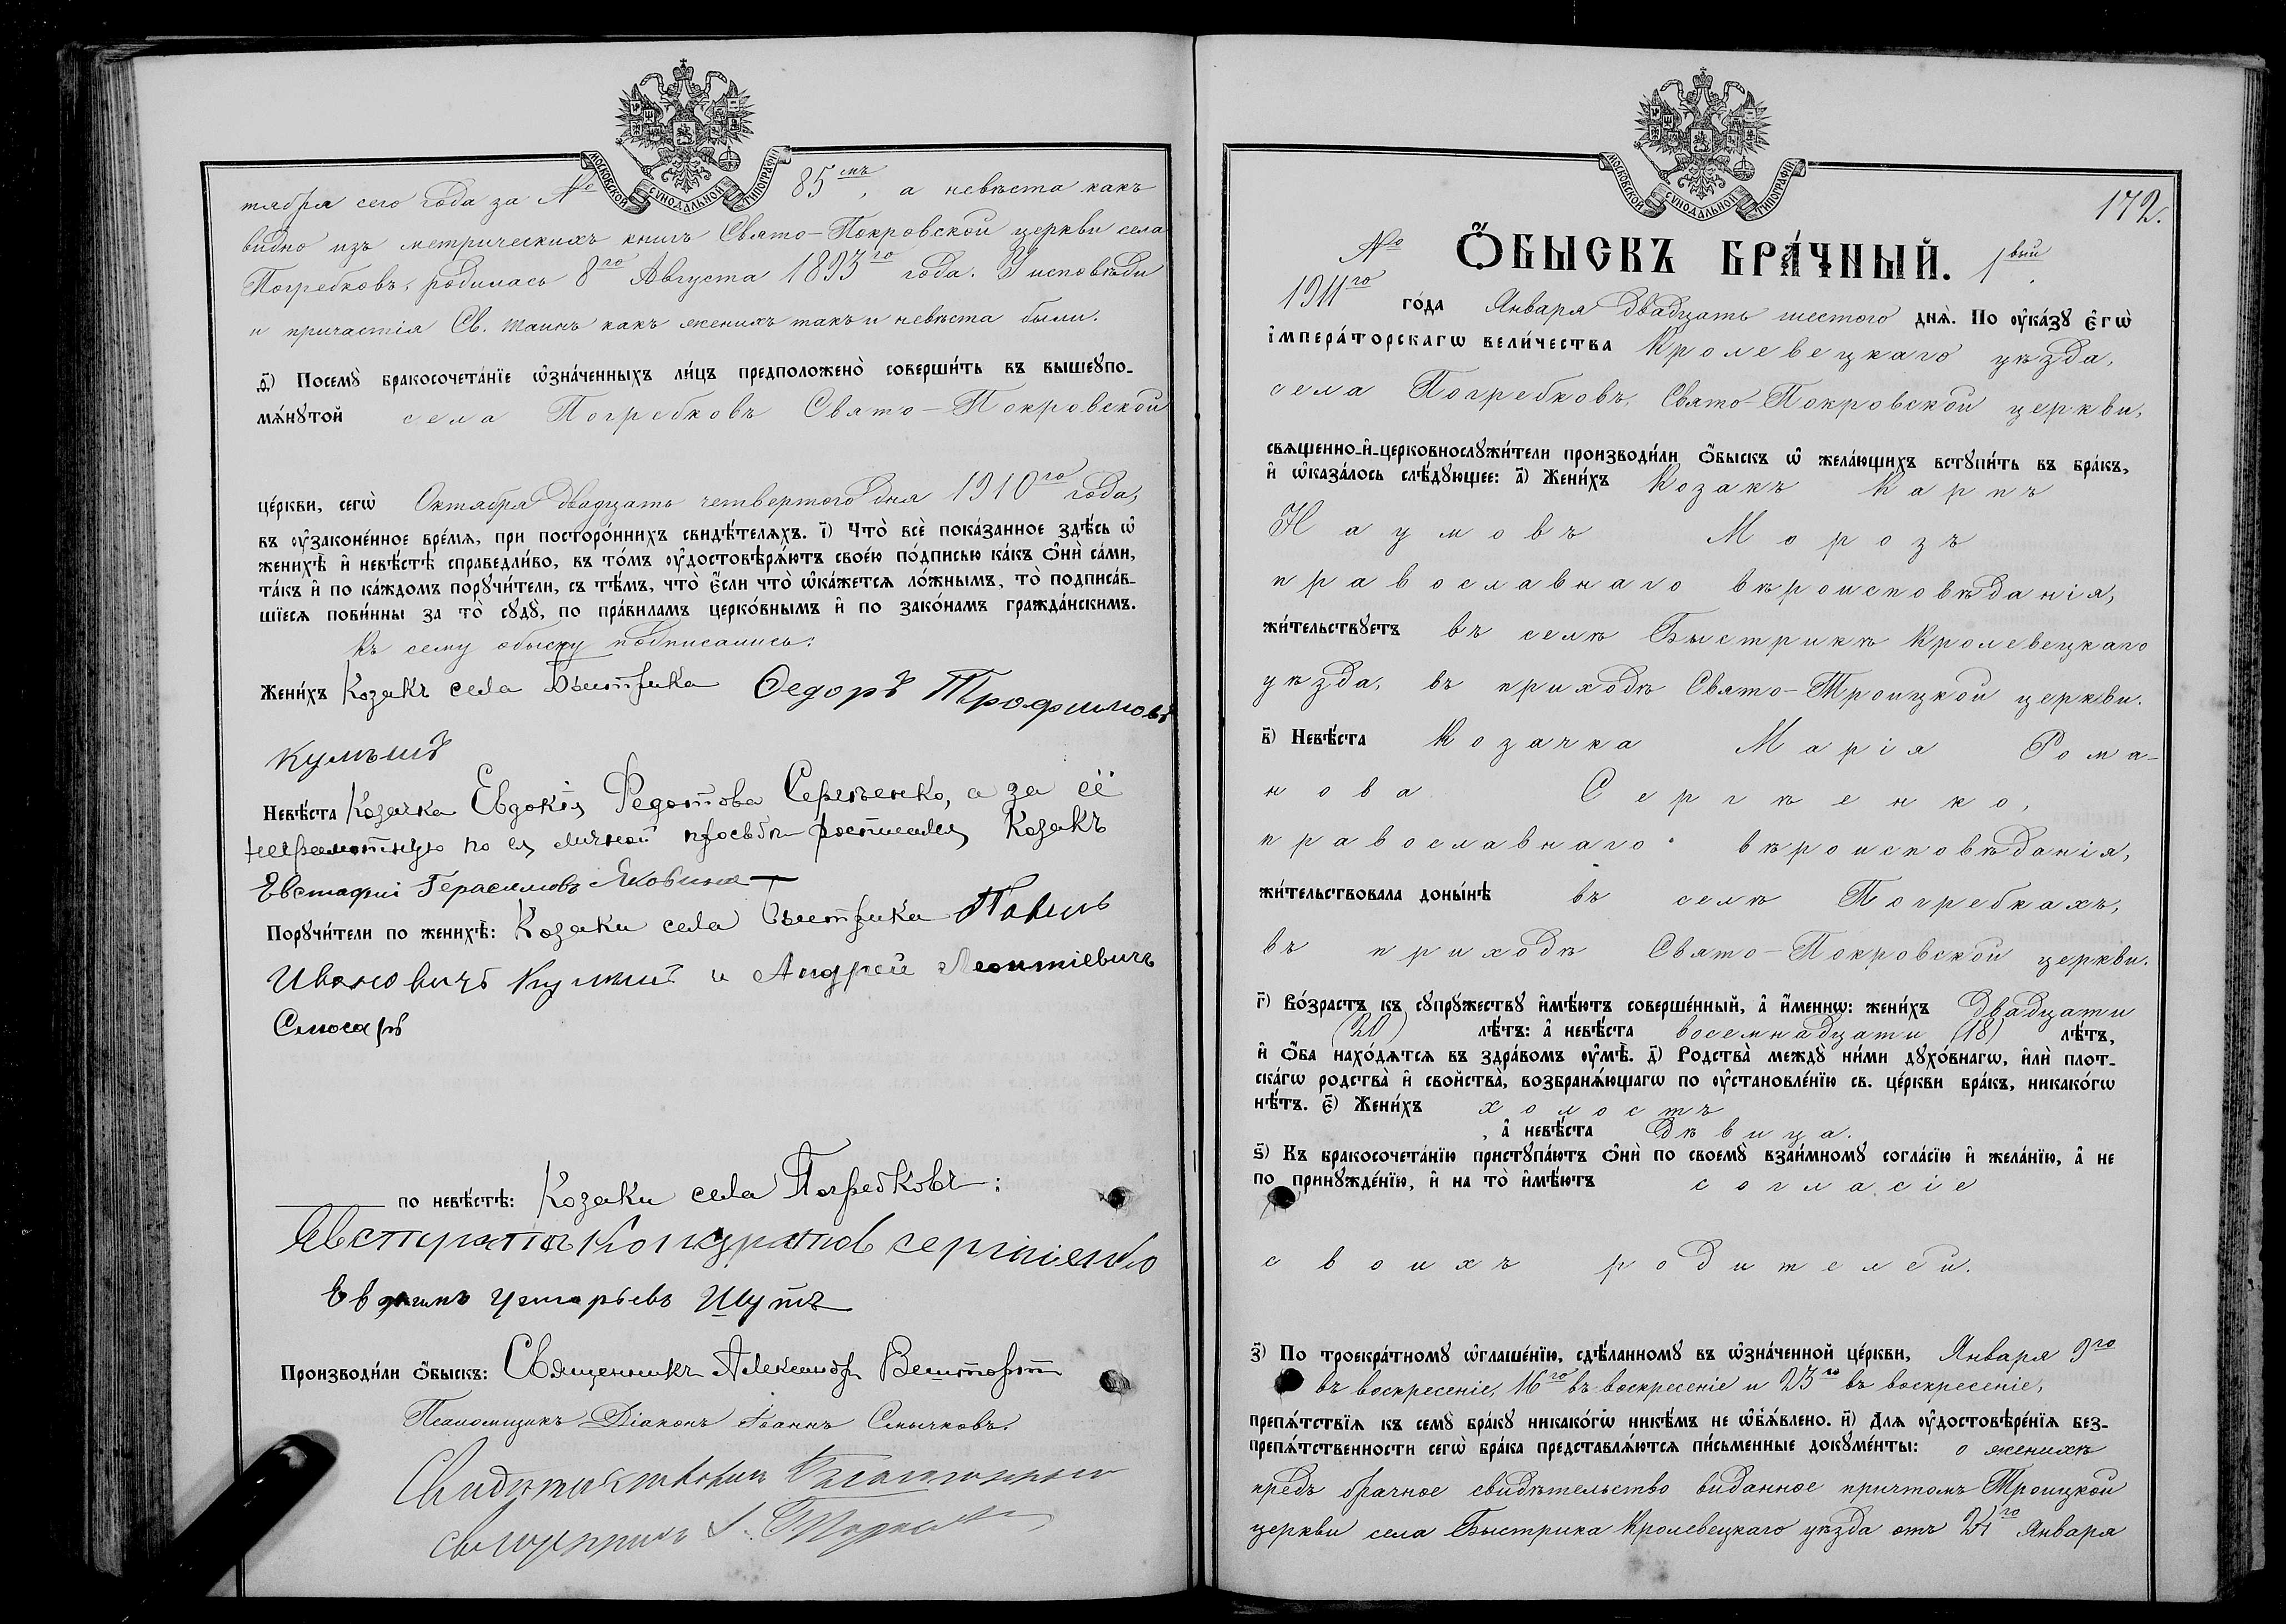 МОСКОВСКОЙ СѴНОДАЛЬНОЙ ТИПОГРАФІИ
тября сего года за № 85мъ, а невѣста какъ
видно изъ метрическихъ книгъ Свято-Покровской церкви села
Погребковъ, родилась 8го Августа 1893го года. У исповѣди
и причастія Св. таинъ какъ женихъ такъ и невѣста были.
д҃і) Посемꙋ̀ бракосочета́нїе ѡ҆зна́ченныхъ ли́цъ предположено̀ соверши́ть въ вышеꙋпо-
мѧ́нꙋтой села Погребковъ Свято-Покровской
це́ркви, сегѡ̀ Октября двадцать четвертого дня 1910го года,
въ ᲂу҆законе́нное вре́мѧ, при посторо́ннихъ свидѣ́телѧхъ. і҃) Что̀ всѐ пока́занное здѣ́сь ѡ҆
женихѣ̀ и҆ невѣ́стѣ справедли́во, въ то́мъ ᲂу҆достовѣрѧ́ютъ свое́ю по́дписью ка́къ ѻ҆нѝ са́ми,
та́къ и҆ по ка́ждомъ порꙋчи́тели, съ тѣ́мъ, что̀ є҆́сли что̀ ѡ҆ка́жетсѧ ло́жнымъ, то̀ подписа́в-
шїесѧ пови́нны за то̀ сꙋдꙋ̀, по пра́виламъ церко́внымъ и҆ по зако́намъ гражда́нскимъ.
Къ сему обыску подписались:
Жени́хъ Козакъ села Быстрика Ѳедоръ Трофимовъ
Кулишъ
Невѣ́ста Козачка Евдокія Федотова Сергѣенко, а за её
неграмотную по ея личной просьбѣ росписался Козакъ
Евстафій Герасимовъ Яковина
Порꙋчи́тели по женихѣ̀: Козаки села Быстрика Павелъ
Ивановичъ Кулишъ и Андрей Леонтіевичъ
Слюсаръ
по невѣ́стѣ: Козаки села Погребковъ:
Кондратов сергіенко
Шутъ
Производи́ли ѻ҆́быскъ: Священникъ Александръ
Псаломщикъ Діаконъ Іоаннъ Смычковъ.
МОСКОВСКОЙ СѴНОДАЛЬНОЙ ТИПОГРАФІИ
172.
№ Ѻ҆БЫСКЪ БРА́ЧНЫЙ. 1вый.
1911го го́да Января двадцать шестого днѧ̀. По ᲂу҆ка́зꙋ є҆гѡ̀
і҆мпера́торскагѡ вели́чества Кролевецкаго уѣзда,
села Погребковъ, Свято-Покровской церкви,
свѧщенно-и҆-церковнослꙋжи́тели производи́ли ѻ҆́быскъ ѡ҆ жела́ющихъ встꙋпи́ть въ бра́къ,
и҆ ѡ҆каза́лось слѣ́дꙋющее: а҃) Жени́хъ Козакъ Карпъ
Наумовъ Морозъ
православнаго вѣроисповѣданія,
жи́тельствꙋетъ въ селѣ Быстрикѣ Кролевецкаго
уѣзда, въ приходѣ Свято-Троицкой церкви.
в҃) Невѣ́ста Козачка Марія Рома-
нова Сергѣенко,
православнаго вѣроисповѣданія,
жи́тельствовала доны́нѣ въ селѣ Погребкахъ,
въ приходѣ Свято-Покровской церкви.
г҃) Во́зрастъ къ сꙋпрꙋ́жествꙋ и҆мѣ́ютъ соверше́нный, а҆ и҆́меннѡ: жени́хъ двадцати
(20) лѣ́тъ: а҆ невѣ́ста восемнадцати (18) лѣ́тъ,
и҆ ѻ҆́ба нахо́дѧтсѧ въ здра́вомъ ᲂу҆мѣ̀. д҃) Родства̀ междꙋ̀ ни́ми дꙋхо́внагѡ, и҆лѝ плот-
ска́гѡ родства̀ и҆ свойства̀, возбранѧ́ющагѡ по ᲂу҆становле́нїю св. це́ркви бра́къ, никако́гѡ
нѣ́тъ. є҃) Жени́хъ холостъ
, а҆ невѣ́ста дѣвица.
ѕ҃) Къ бракосочета́нїю пристꙋпа́ютъ ѻ҆нѝ по своемꙋ̀ взаи́мномꙋ согла́сїю и҆ жела́нїю, а҆ не
по принꙋжде́нїю, и҆ на то̀ и҆мѣ́ютъ согласіе
своихъ родителей.
з҃) По троекра́тномꙋ ѡ҆глаше́нїю, сдѣ́ланномꙋ въ ѡ҆зна́ченной це́ркви, Января 9го
въ воскресеніе, 16го въ воскресеніе и 23го въ воскресеніе,
препѧ́тствїѧ къ семꙋ̀ бра́кꙋ никако́гѡ никѣ́мъ не ѡ҆б̾ѧ́влено. и҃) Длѧ ᲂу҆достовѣре́нїѧ без-
препѧ́тственности сегѡ̀ бра́ка представлѧ́ютсѧ пи́сьменные докꙋме́нты: о женихѣ
предъ брачное свидѣтельство виданное причтомъ Троицкой
церкви села Быстрика Кролевецкаго уѣзда отъ 21го Января